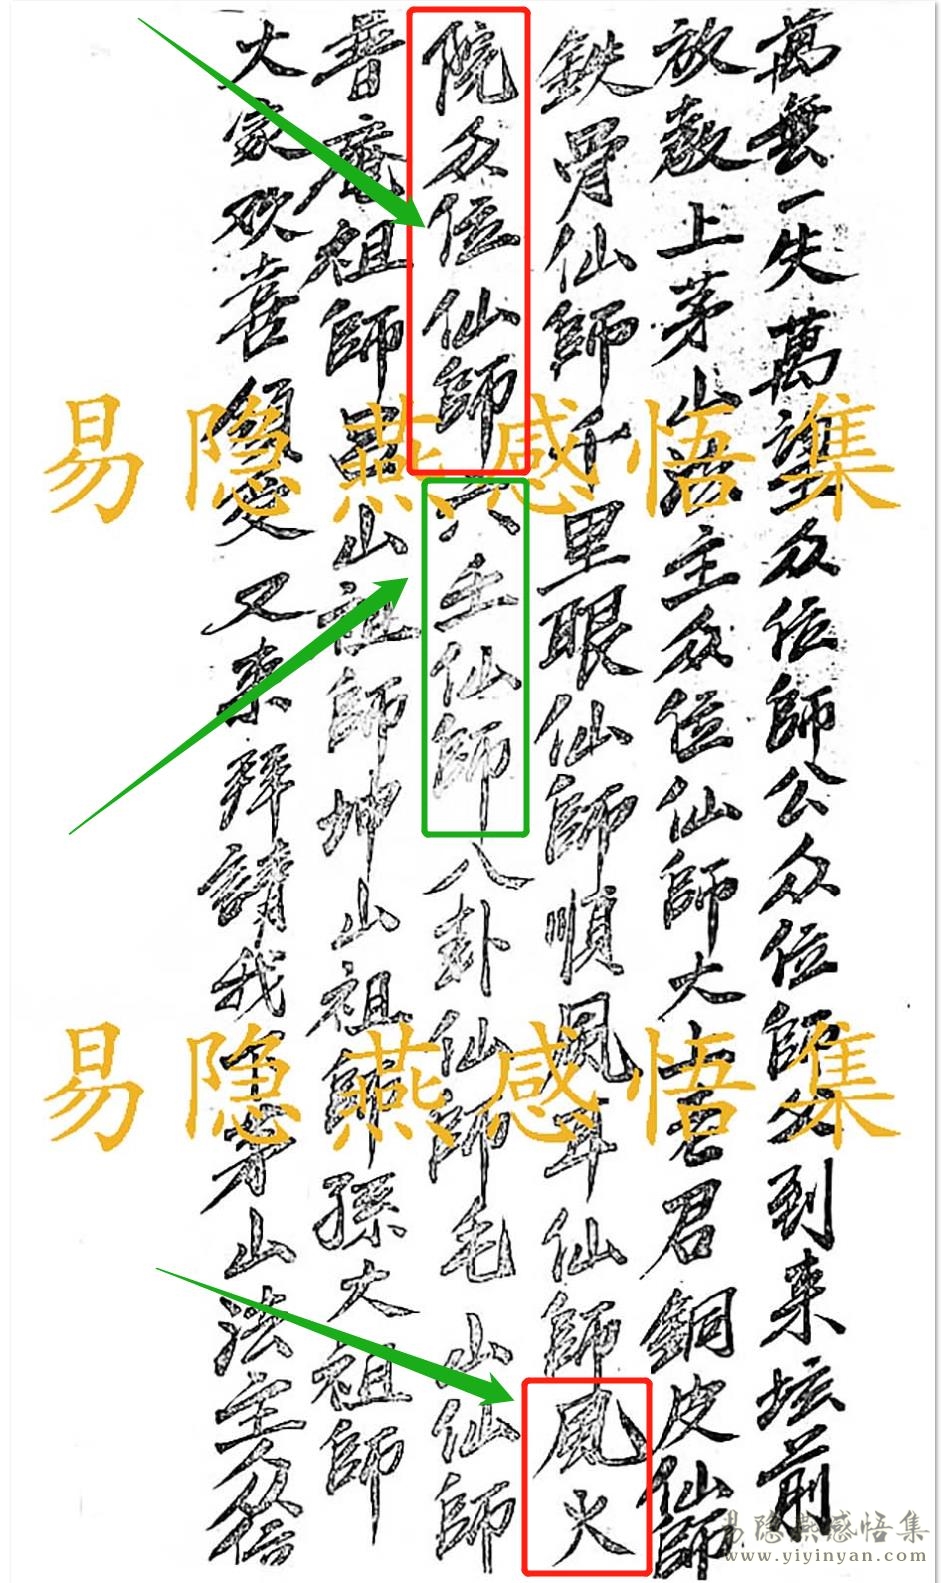 萬無一失萬謹眾位師公眾位師父到來坛前
放教上茅山法主眾位仙師大上老君銅皮仙師
鉄骨仙師千里眼仙師順風耳仙師風火
院眾位仙師六壬仙師八卦仙師毛山仙師
普庵祖師昆山祖師坤山祖師孫大祖師
大家欢喜領受又来拜請我茅山法主众位
易隐燕感悟集
易隐燕感悟集
易隐燕感悟集
www.yiyinyan.com